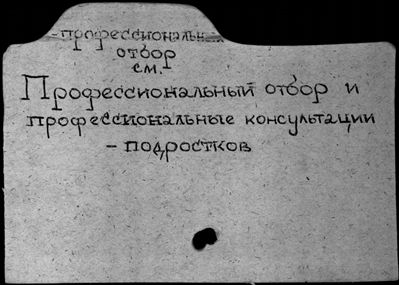 -професиональн.
отбор
см.
Профессиональный отбор и
профессиональные консультации
- подростков